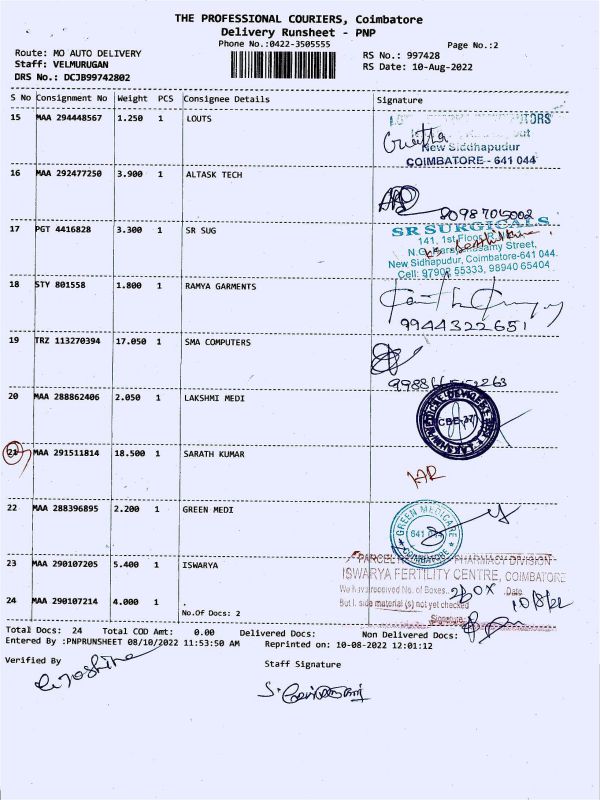 THE PROFESSIONAL COURIERS, Coimbatore
Delivery Runsheet - PNP
Phone No.:0422-3505555
Page No.:2
Route: MO AUTO DELIVERY
Staff: VELMURUGAN
DRS No.: DCJB99742802
RS No.: 997428
RS Date: 10-Aug-2022
S No Consignment No Weight PCS Consignee Details Signature
15 MAA 294448567 1.250 1 LOUTS
New Siddhapudur
COIMBATORE - 641 044
16 MAA 292477250 3.900 1 ALTASK TECH
17 PGT 4416828 3.300 1 SR SUG
SR SURGICALS
141, 1st Floor,
Street,
New Sidhapudur, Coimbatore-641 044.
Cell: 97902 55333, 98940 65404
18 STY 801558 1.800 1 RAMYA GARMENTS
9944322651
19 TRZ 113270394 17.050 1 SMA COMPUTERS
20 MAA 288862406 2.050 1 LAKSHMI MEDI
CBE-37
21 MAA 291511814 18.500 1 SARATH KUMAR
22 MAA 288396895 2.200 1 GREEN MEDI
GREEN MEDICARE
COIMBATORE
23 MAA 290107205 5.400 1 ISWARYA
PHARMACY DIVISION
ISWARYA FERTILITY CENTRE, COIMBATORE
We have received No. of Boxes. Date
But I. side material (s) not yet checked
10/8/22
Signature
24 MAA 290107214 4.000 1 .
No.Of Docs: 2
Total Docs: 24 Total COD Amt: 0.00 Delivered Docs: Non Delivered Docs:
Entered By :PNPRUNSHEET 08/10/2022 11:53:50 AM Reprinted on: 10-08-2022 12:01:12
Verified By
Staff Signature